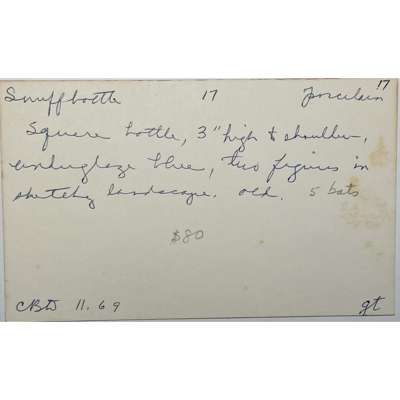 17
Snuffbottle 17 Porcelain
Square bottle, 3" high to shoulder,
underglaze blue, two figures in
sketchy landscape. old. 5 bats
$80
CBW 11.69 gt